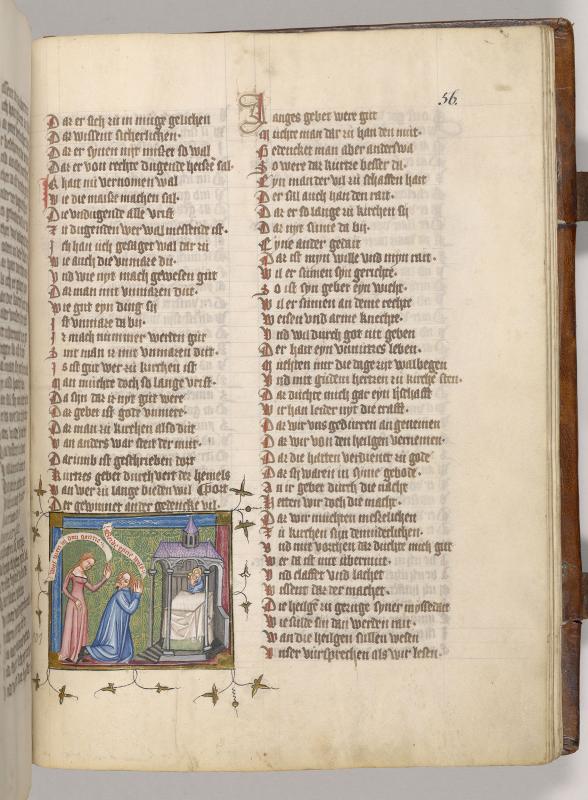 56.
Daz er sich zu in muge gelichen
Daz wissent sicherlichen.
Daz er synen nyt mistet so wal
Daz er von rechte dugende heiset sal.
hait nu vernomen wal
wie die maise machen sal.
Die undugende alle vrist
Zu dugenden wer wal messende ist.
Ich han uch gesaget wal dar zu
wie auch die unmaze dit.
Und wie nyt mach gewesen gut
Daz man mit unmazen dut.
wie gut eyn ding sij
ist unmaze da bij.
Iz mach nummer werden gut
Sint man iz mit unmazen dut.
Is ist gut wer zu kirchen ist
Man muchte doch so lange vrist.
Da sijn daz iz nyt gut were
Daz gebet ist gode unmere.
Daz man zu kirchen also dut
wan anders war steit der mut.
Darumb ist geschrieben dort
Kurtzes gebet durch vert der hemels
wan wer zu lange bieden wil port
Der gewinnet ander gedencke vil.
Langes gebet were gut
Muchte man dar zu han den mut.
Gedencket man aber anderswa
So were daz kurtze besser da.
Eyn man der vil zu schaffen hait
Der sal auch han den rait.
Daz er so lange zu kirchen sij
Daz nyt sunde da bij.
Eyne ander gedait
Daz ist myn wille und myn rait.
wil er sumen syn gerichte.
So ist syn gebet eyn wicht.
wil er sumen an deme rechte
weisen und arme knechte.
Und wil durch got nit geben
Der hait eyn unnutzes leben.
Muchten mir die dage zijt walbegen
Und mit gudem hertzen zu kirche sten.
Daz duchte mich gar eyn hschafft
wir han leider nyt die crafft.
Daz wir uns gedurren an genemen
Daz wir von den heilgen vernemen.
Daz die hatten verdienet zu gode
Daz sij waren in syme gebode.
An ir gebet durch die nacht
Hetten wir doch die macht.
Daz wir muchten messelichen
Zu kirchen sijn demudeclichen.
Und mit vorchten daz duchte mich gut
wer da ist mit ubermut.
Und claffet und lachet
wissent daz der machet.
Die heilge zu gezuge syner myssedait
wie sulde sin dan werden rait.
wan die heilgen sullen wesen
Unser vursprechen als wir lesen.